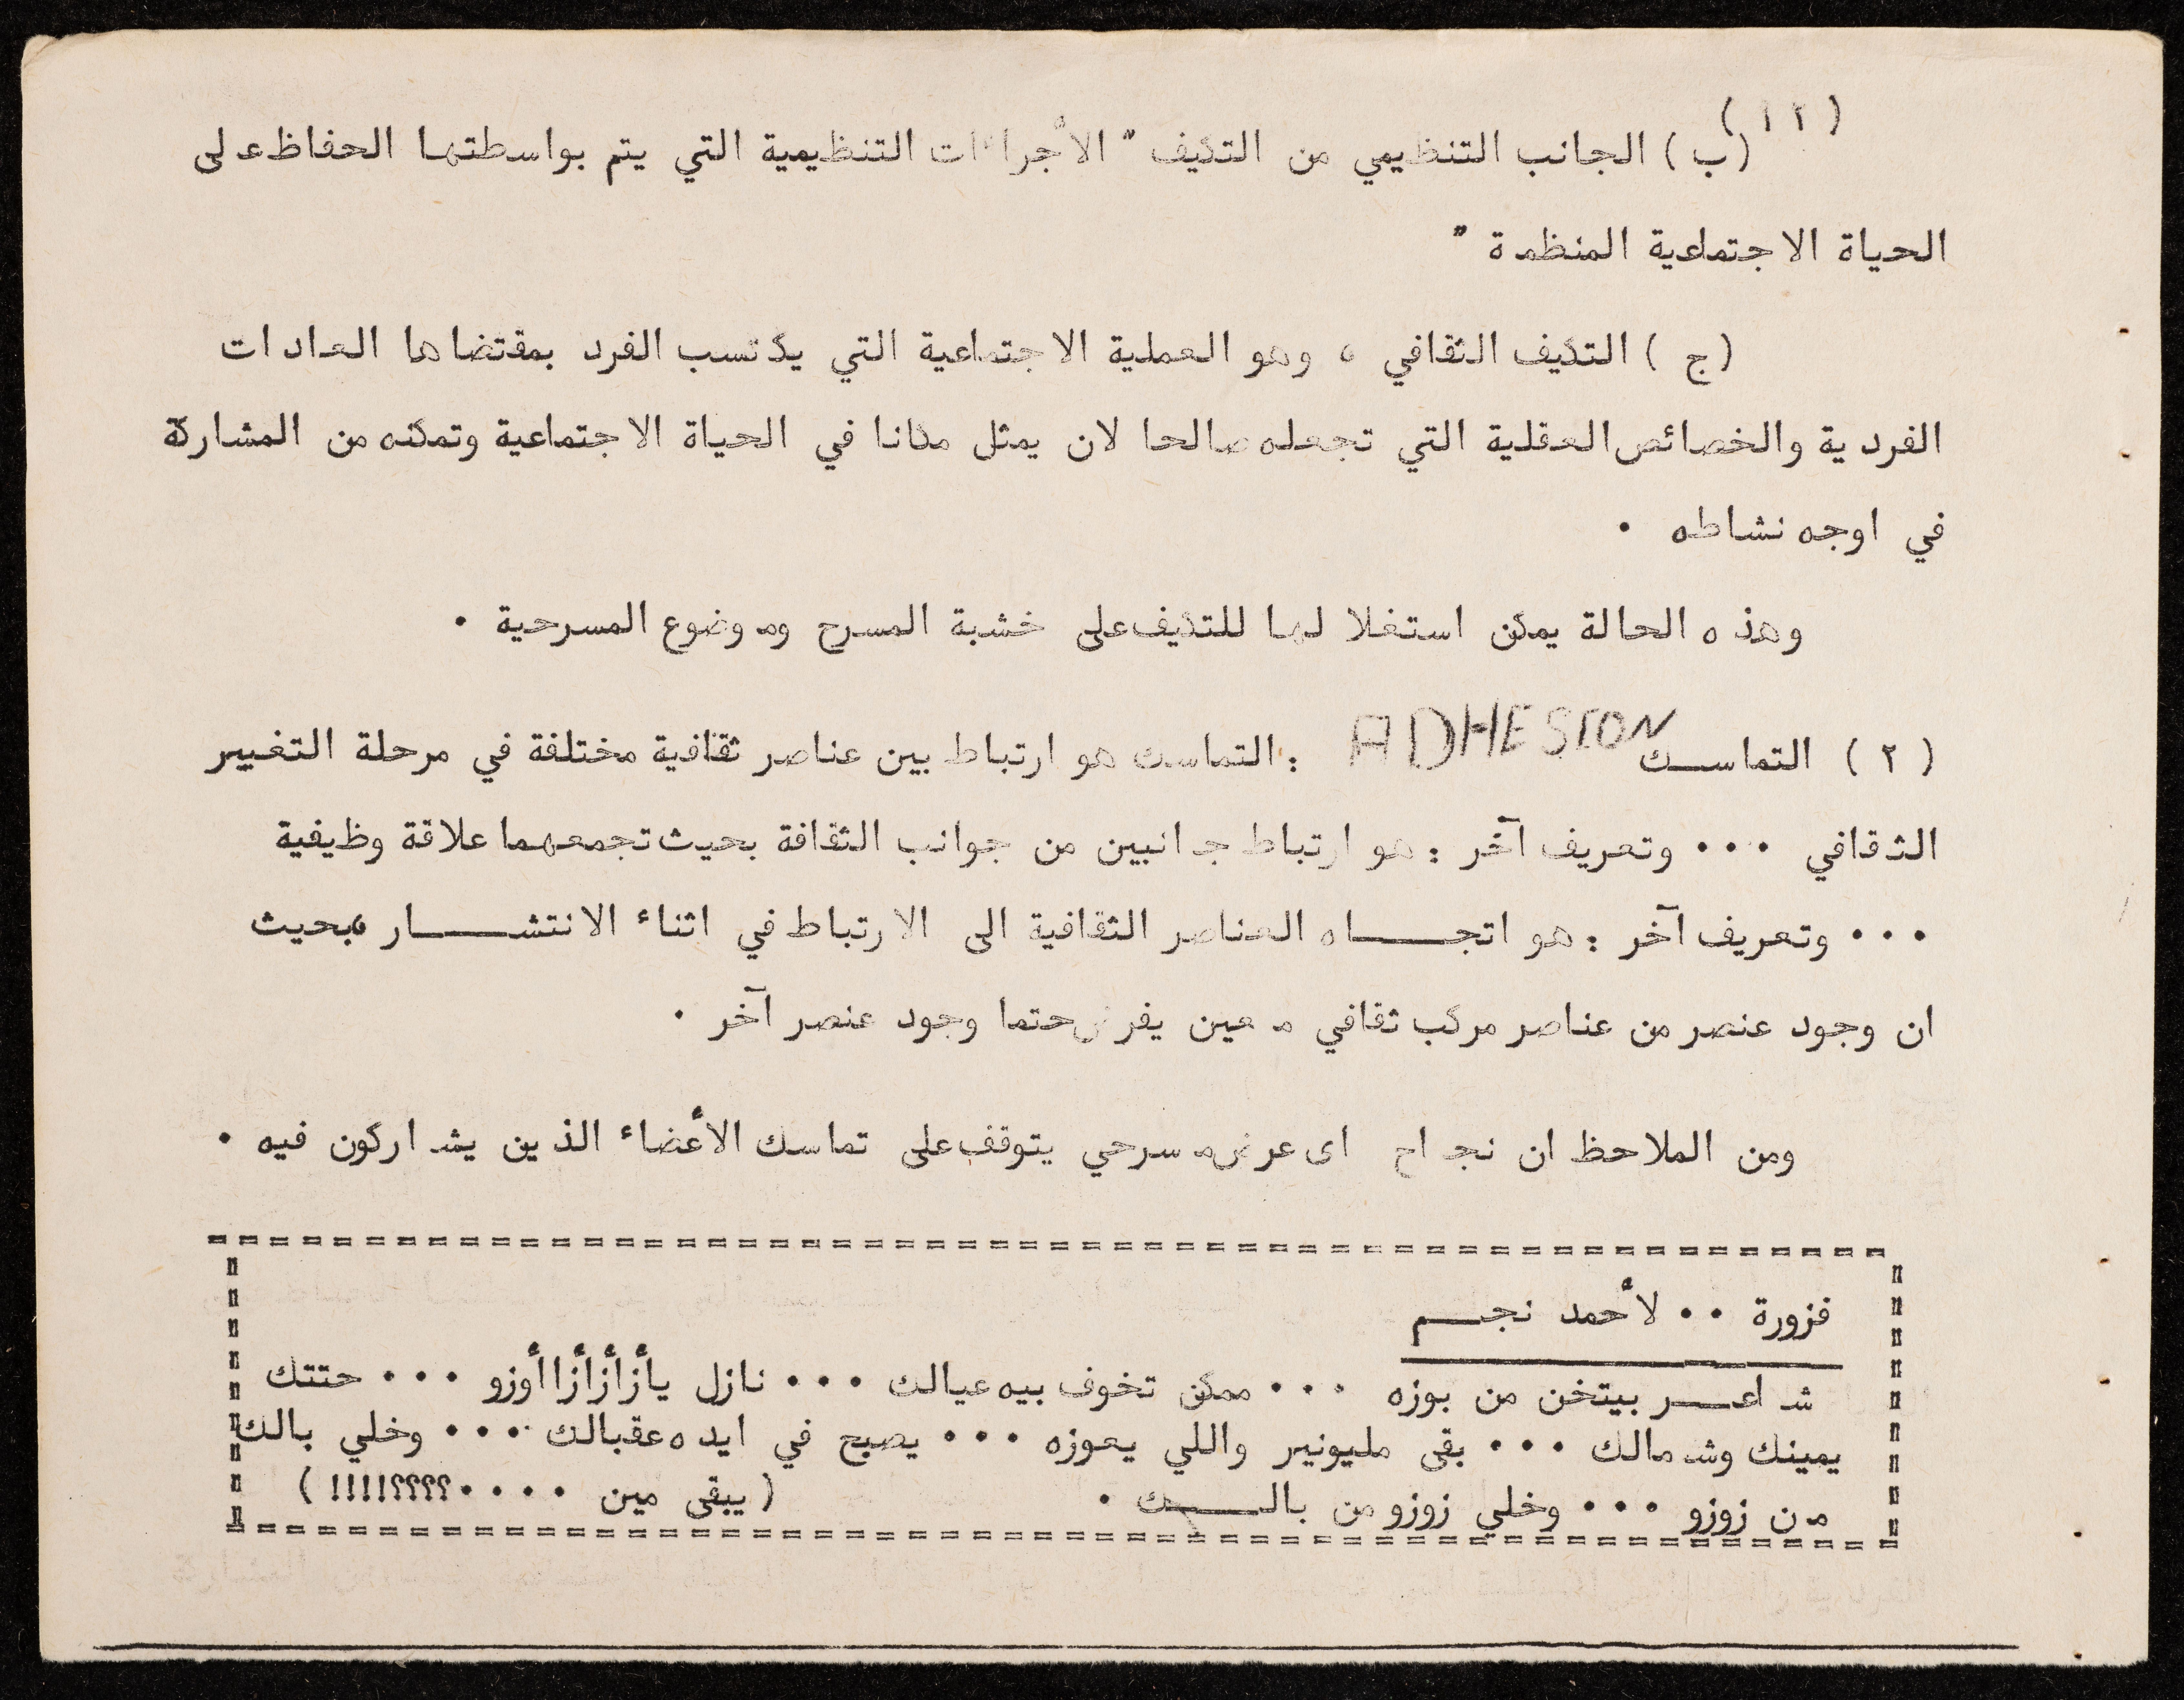 (١٢)
(ب) الجانب التنظيمي من التكيف " الأجراءات التنظيمية التي يتم بواسطتها الحفاظ على
الحياة الاجتماعية المنظمة "
(ج) التكيف الثقافي ، وهو العملية الاجتماعية التي يكتسب الفرد بمقتضاها العادات
الفردية والخصائص العقلية التي تجعله صالحا لان يمثل مكانا في الحياة الاجتماعية وتمكنه من المشاركة
في اوجه نشاطه .
وهذه الحالة يمكن استغلالها للتكيف على خشبة المسرح وموضوع المسرحية .
(٢) التماسك ADHESION : التماسك هو ارتباط بين عناصر ثقافية مختلفة في مرحلة التغيير
الثقافي ... وتعريف آخر : هو ارتباط جانبين من جوانب الثقافة بحيث تجمعهما علاقة وظيفية
... وتعريف آخر : هو اتجاه العناصر الثقافية الى الارتباط في اثناء الانتشار ، بحيث
ان وجود عنصر من عناصر مركب ثقافي معين يفرض حتما وجود عنصر آخر .
ومن الملاحظ ان نجاح اى عرض مسرحي يتوقف على تماسك الأعضاء الذين يشاركون فيه .
فزورة .. لأحمد نجم
شاعر بيتخن من بوزه ... ممكن تخوف بيه عيالك ... نازل يأزأزأزاأوزو ... حتتك
يمينك وشمالك ... بقى مليونير واللي يعوزه ... يصبح في ايده عقبالك ... وخلي بالك
من زوزو ... وخلي زوزو من بالك . (يبقى مين ....؟؟؟؟!!!!)